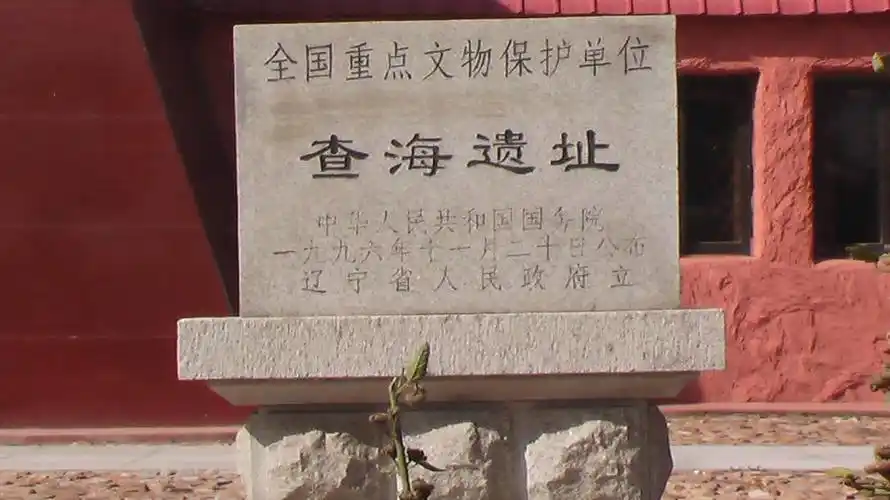 全国重点文物保护单位
查海遗址
中华人民共和国国务院
一九九六年十一月二十日公布
辽宁省人民政府立